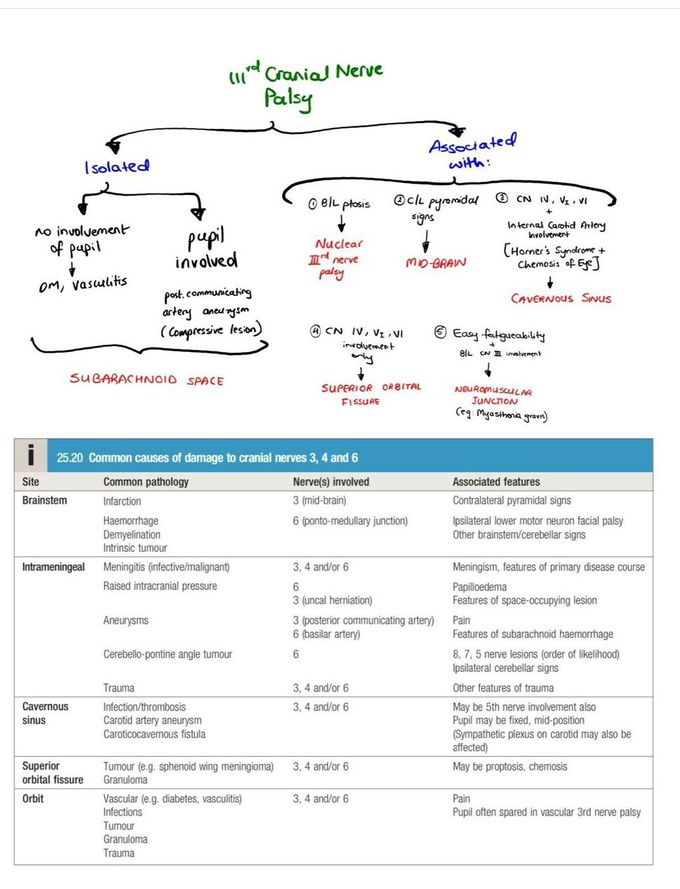 IIIrd Cranial Nerve
Palsy
Isolated
Associated
with:
no involvement
of pupil
DM, vasculitis
pupil
involved
post. communicating
artery aneurysm
(compressive lesion)
SUBARACHNOID SPACE
① B/L ptosis
Nuclear
IIIrd nerve
palsy
② C/L pyramidal
signs
MID-BRAIN
③ CN IV, V1, VI
+
Internal Carotid Artery
Involvement
[Horner's Syndrome +
Chemosis of Eye]
CAVERNOUS SINUS
④ CN IV, V1, VI
involvement
only
SUPERIOR ORBITAL
FISSURE
⑤ Easy fatigueability
+
B/L CN III involvement
NEUROMUSCULAR
JUNCTION
(eg: Myasthenia gravis)
i 25.20 Common causes of damage to cranial nerves 3, 4 and 6
Site Common pathology Nerve(s) involved Associated features
Brainstem Infarction 3 (mid-brain) Contralateral pyramidal signs
Haemorrhage 6 (ponto-medullary junction) Ipsilateral lower motor neuron facial palsy
Demyelination Other brainstem/cerebellar signs
Intrinsic tumour
Intrameningeal Meningitis (infective/malignant) 3, 4 and/or 6 Meningism, features of primary disease course
Raised intracranial pressure 6 Papilloedema
3 (uncal herniation) Features of space-occupying lesion
Aneurysms 3 (posterior communicating artery) Pain
6 (basilar artery) Features of subarachnoid haemorrhage
Cerebello-pontine angle tumour 6 8, 7, 5 nerve lesions (order of likelihood)
Ipsilateral cerebellar signs
Trauma 3, 4 and/or 6 Other features of trauma
Cavernous Infection/thrombosis 3, 4 and/or 6 May be 5th nerve involvement also
sinus Carotid artery aneurysm Pupil may be fixed, mid-position
Caroticocavernous fistula (Sympathetic plexus on carotid may also be
affected)
Superior Tumour (e.g. sphenoid wing meningioma) 3, 4 and/or 6 May be proptosis, chemosis
orbital fissure Granuloma
Orbit Vascular (e.g. diabetes, vasculitis) 3, 4 and/or 6 Pain
Infections Pupil often spared in vascular 3rd nerve palsy
Tumour
Granuloma
Trauma